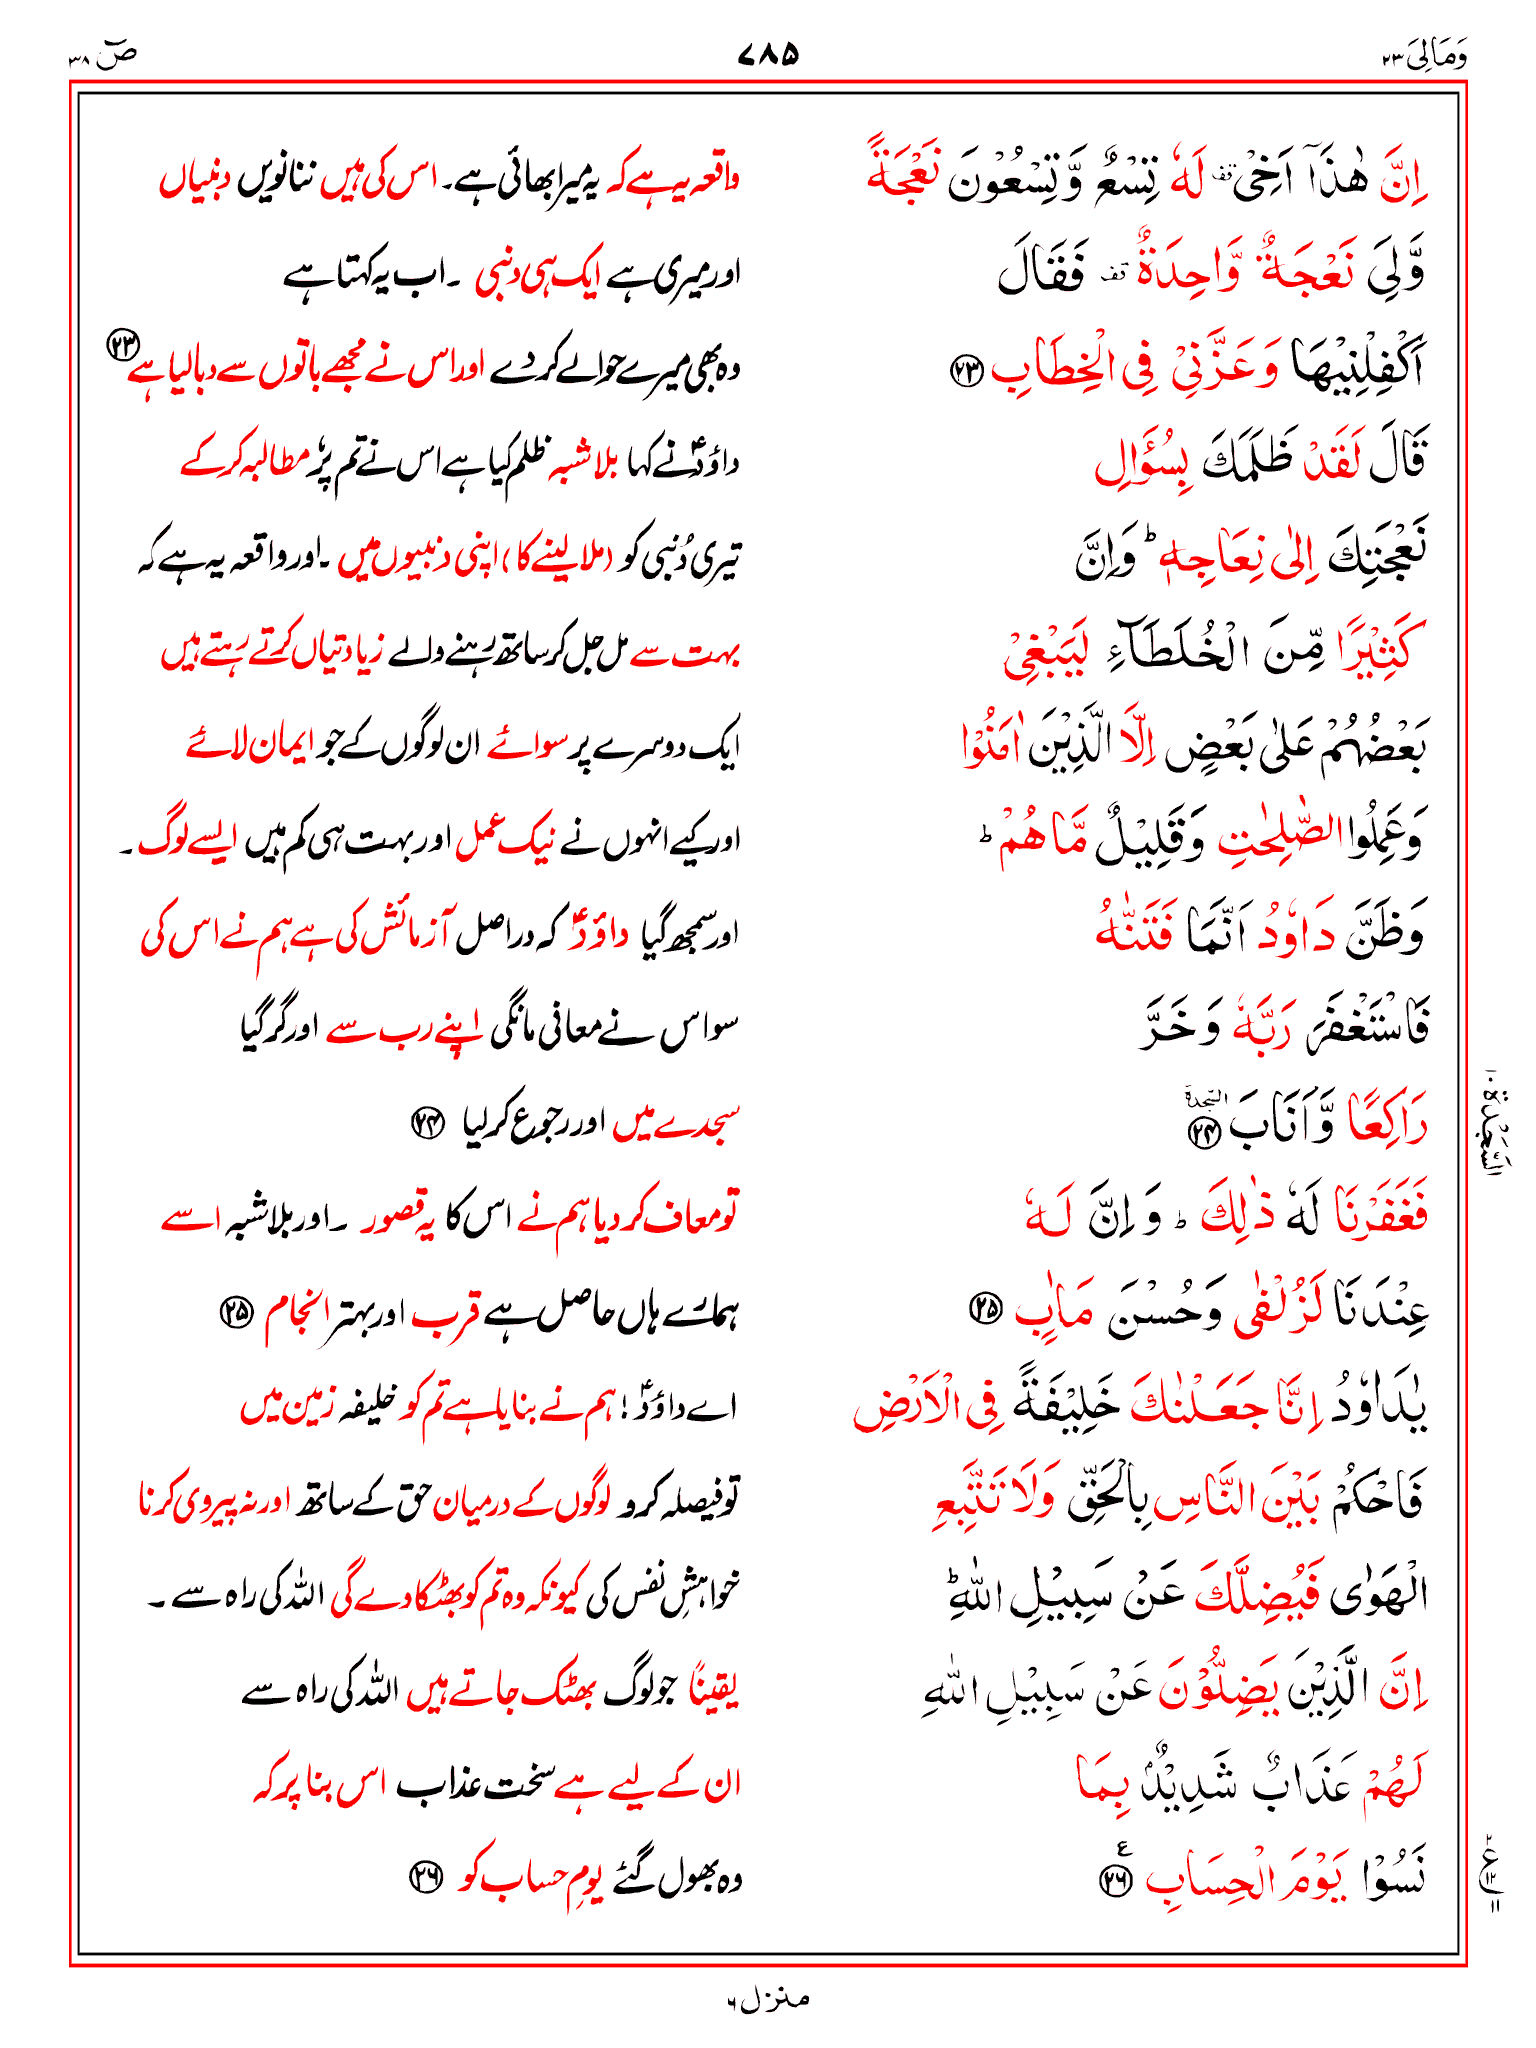 وَمَالِیَ ۲۳
۷۸۵
صٓ ۳۸
اِنَّ هٰذَاۤ اَخِیْ ۫ قف لَهٗ تِسْعٌ وَّتِسْعُوْنَ نَعْجَةً واقعہ یہ ہے کہ یہ میرا بھائی ہے۔ اس کی ہیں ننانویں دنبیاں
وَّلِیَ نَعْجَةٌ وَّاحِدَةٌ ۫ قف فَقَالَ اور میری ہے ایک ہی دنبی ۔ اب یہ کہتا ہے
اَكْفِلْنِیْهَا وَعَزَّنِیْ فِی الْخِطَابِ ﴿۲۳﴾ وہ بھی میرے حوالے کر دے اور اس نے مجھے باتوں سے دبا لیا ہے ﴿۲۳﴾
قَالَ لَقَدْ ظَلَمَكَ بِسُؤَالِ داؤدؑ نے کہا بلا شبہ ظلم کیا ہے اس نے تم پر مطالبہ کر کے
نَعْجَتِكَ اِلٰی نِعَاجِهٖ ؕ وَاِنَّ تیری دُنبی کو (ملا لینے کا) اپنی دنبیوں میں ۔ اور واقعہ یہ ہے کہ
كَثِیْرًا مِّنَ الْخُلَطَآءِ لَیَبْغِیْ بہت سے مل جل کر ساتھ رہنے والے زیادتیاں کرتے رہتے ہیں
بَعْضُهُمْ عَلٰی بَعْضٍ اِلَّا الَّذِیْنَ اٰمَنُوْا ایک دوسرے پر سوائے ان لوگوں کے جو ایمان لائے
وَعَمِلُوا الصّٰلِحٰتِ وَقَلِیْلٌ مَّا هُمْ ؕ اور کیے انہوں نے نیک عمل اور بہت ہی کم ہیں ایسے لوگ ۔
وَظَنَّ دَاوٗدُ اَنَّمَا فَتَنّٰهُ اور سمجھ گیا داؤدؑ کہ دراصل آزمائش کی ہے ہم نے اس کی
فَاسْتَغْفَرَ رَبَّهٗ وَخَرَّ سو اس نے معافی مانگی اپنے رب سے اور گر گیا
رَاكِعًا وَّاَنَابَ السجدة ﴿۲۴﴾ سجدے میں اور رجوع کر لیا ﴿۲۴﴾
السَّجْدَة ۱۰
فَغَفَرْنَا لَهٗ ذٰلِكَ ؕ وَاِنَّ لَهٗ تو معاف کر دیا ہم نے اس کا یہ قصور ۔ اور بلا شبہ اسے
عِنْدَنَا لَزُلْفٰی وَحُسْنَ مَاٰبٍ ﴿۲۵﴾ ہمارے ہاں حاصل ہے قرب اور بہتر انجام ﴿۲۵﴾
یٰدَاوٗدُ اِنَّا جَعَلْنٰكَ خَلِیْفَةً فِی الْاَرْضِ اے داؤدؑ! ہم نے بنایا ہے تم کو خلیفہ زمین میں
فَاحْكُمْ بَیْنَ النَّاسِ بِالْحَقِّ وَلَا تَتَّبِعِ تو فیصلہ کرو لوگوں کے درمیان حق کے ساتھ اور نہ پیروی کرنا
الْهَوٰی فَیُضِلَّكَ عَنْ سَبِیْلِ اللهِ ؕ خواہشِ نفس کی کیونکہ وہ تم کو بھٹکا دے گی اللہ کی راہ سے ۔
اِنَّ الَّذِیْنَ یَضِلُّوْنَ عَنْ سَبِیْلِ اللهِ یقیناً جو لوگ بھٹک جاتے ہیں اللہ کی راہ سے
لَهُمْ عَذَابٌ شَدِیْدٌۢ بِمَا ان کے لیے ہے سخت عذاب اس بنا پر کہ
نَسُوْا یَوْمَ الْحِسَابِ ﴿۲۶﴾ ع وہ بھول گئے یومِ حساب کو ﴿۲۶﴾
۲ ع ۱۲ ۱۱
منزل ۶